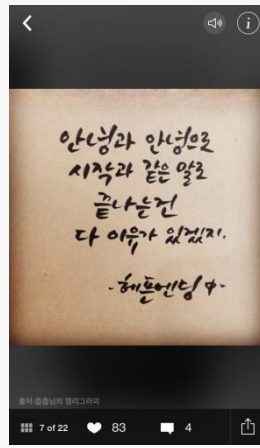 안녕과 안녕으로
시작과 같은 말로
끝나는건
다 이유가 있겠지.
-헤픈엔딩 中-
출처:춤춤님의 캘리그라피
7 of 22
83
4